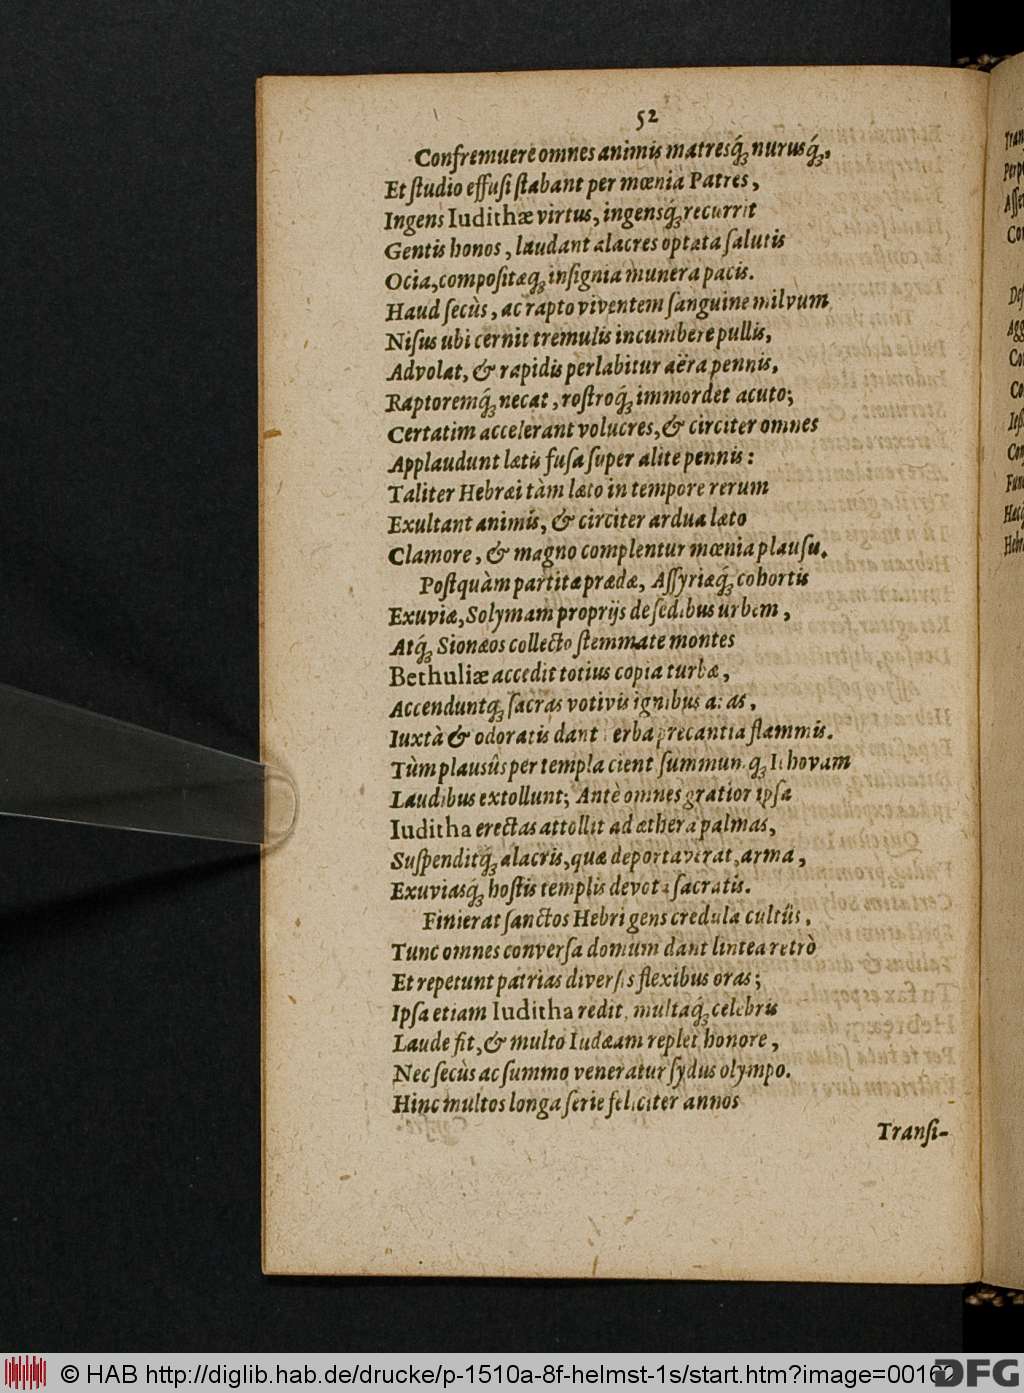 52
Confremuere omnes animis matresq́ꝫ nurusq́ꝫ,
Et ſtudio effuſi ſtabant per mœnia Patres,
Ingens Iudithæ virtus, ingensq́ꝫ recurrit
Gentis honos, laudant alacres optata ſalutis
Ocia, compoſitæq́ꝫ inſignia munera pacis.
Haud ſecùs, ac rapto viventem ſanguine milvum
Niſus ubi cernit tremulis incumbere pullis,
Advolat, & rapidis perlabitur aëra pennis,
Raptoremq́ꝫ necat, roſtroq́ꝫ immordet acuto;
Certatim accelerant volucres, & circiter omnes
Applaudunt lætis fuſa ſuper alite pennis:
Taliter Hebræi tàm læto in tempore rerum
Exultant animis, & circiter ardua læto
Clamore, & magno complentur mœnia plauſu.
Poſtquàm partitæ prædæ, Aſſyriæq́ꝫ cohortis
Exuviæ, Solymam proprijs de ſedibus urbem,
Atq́ꝫ Sionæos collecto ſtemmate montes
Bethuliæ accedit totius copia turbæ,
Accenduntq́ꝫ ſacras votivis ignibus aras,
Iuxtà & odoratis dant verba precantia flammis.
Tùm plausûs per templa cient ſummumq́ꝫ Iehovam
Laudibus extollunt; Antè omnes gratior ipſa
Iuditha erectas attollit ad æthera palmas,
Suſpenditq́ꝫ alacris, quæ deportaverat, arma,
Exuviasq́ꝫ hoſtis templis devota ſacratis.
Finierat ſanctos Hebri gens credula cultûs,
Tunc omnes converſa domum dant lintea retrò
Et repetunt patrias diverſis flexibus oras;
Ipſa etiam Iuditha redit, multaq́ꝫ celebris
Laude fit, & multo Iudæam replet honore,
Nec ſecùs ac ſummo veneratur ſydus olympo.
Hinc multos longa ſerie feliciter annos
Tranſi-
© HAB http://diglib.hab.de/drucke/p-1510a-8f-helmst-1s/start.htm?image=00162
DFG